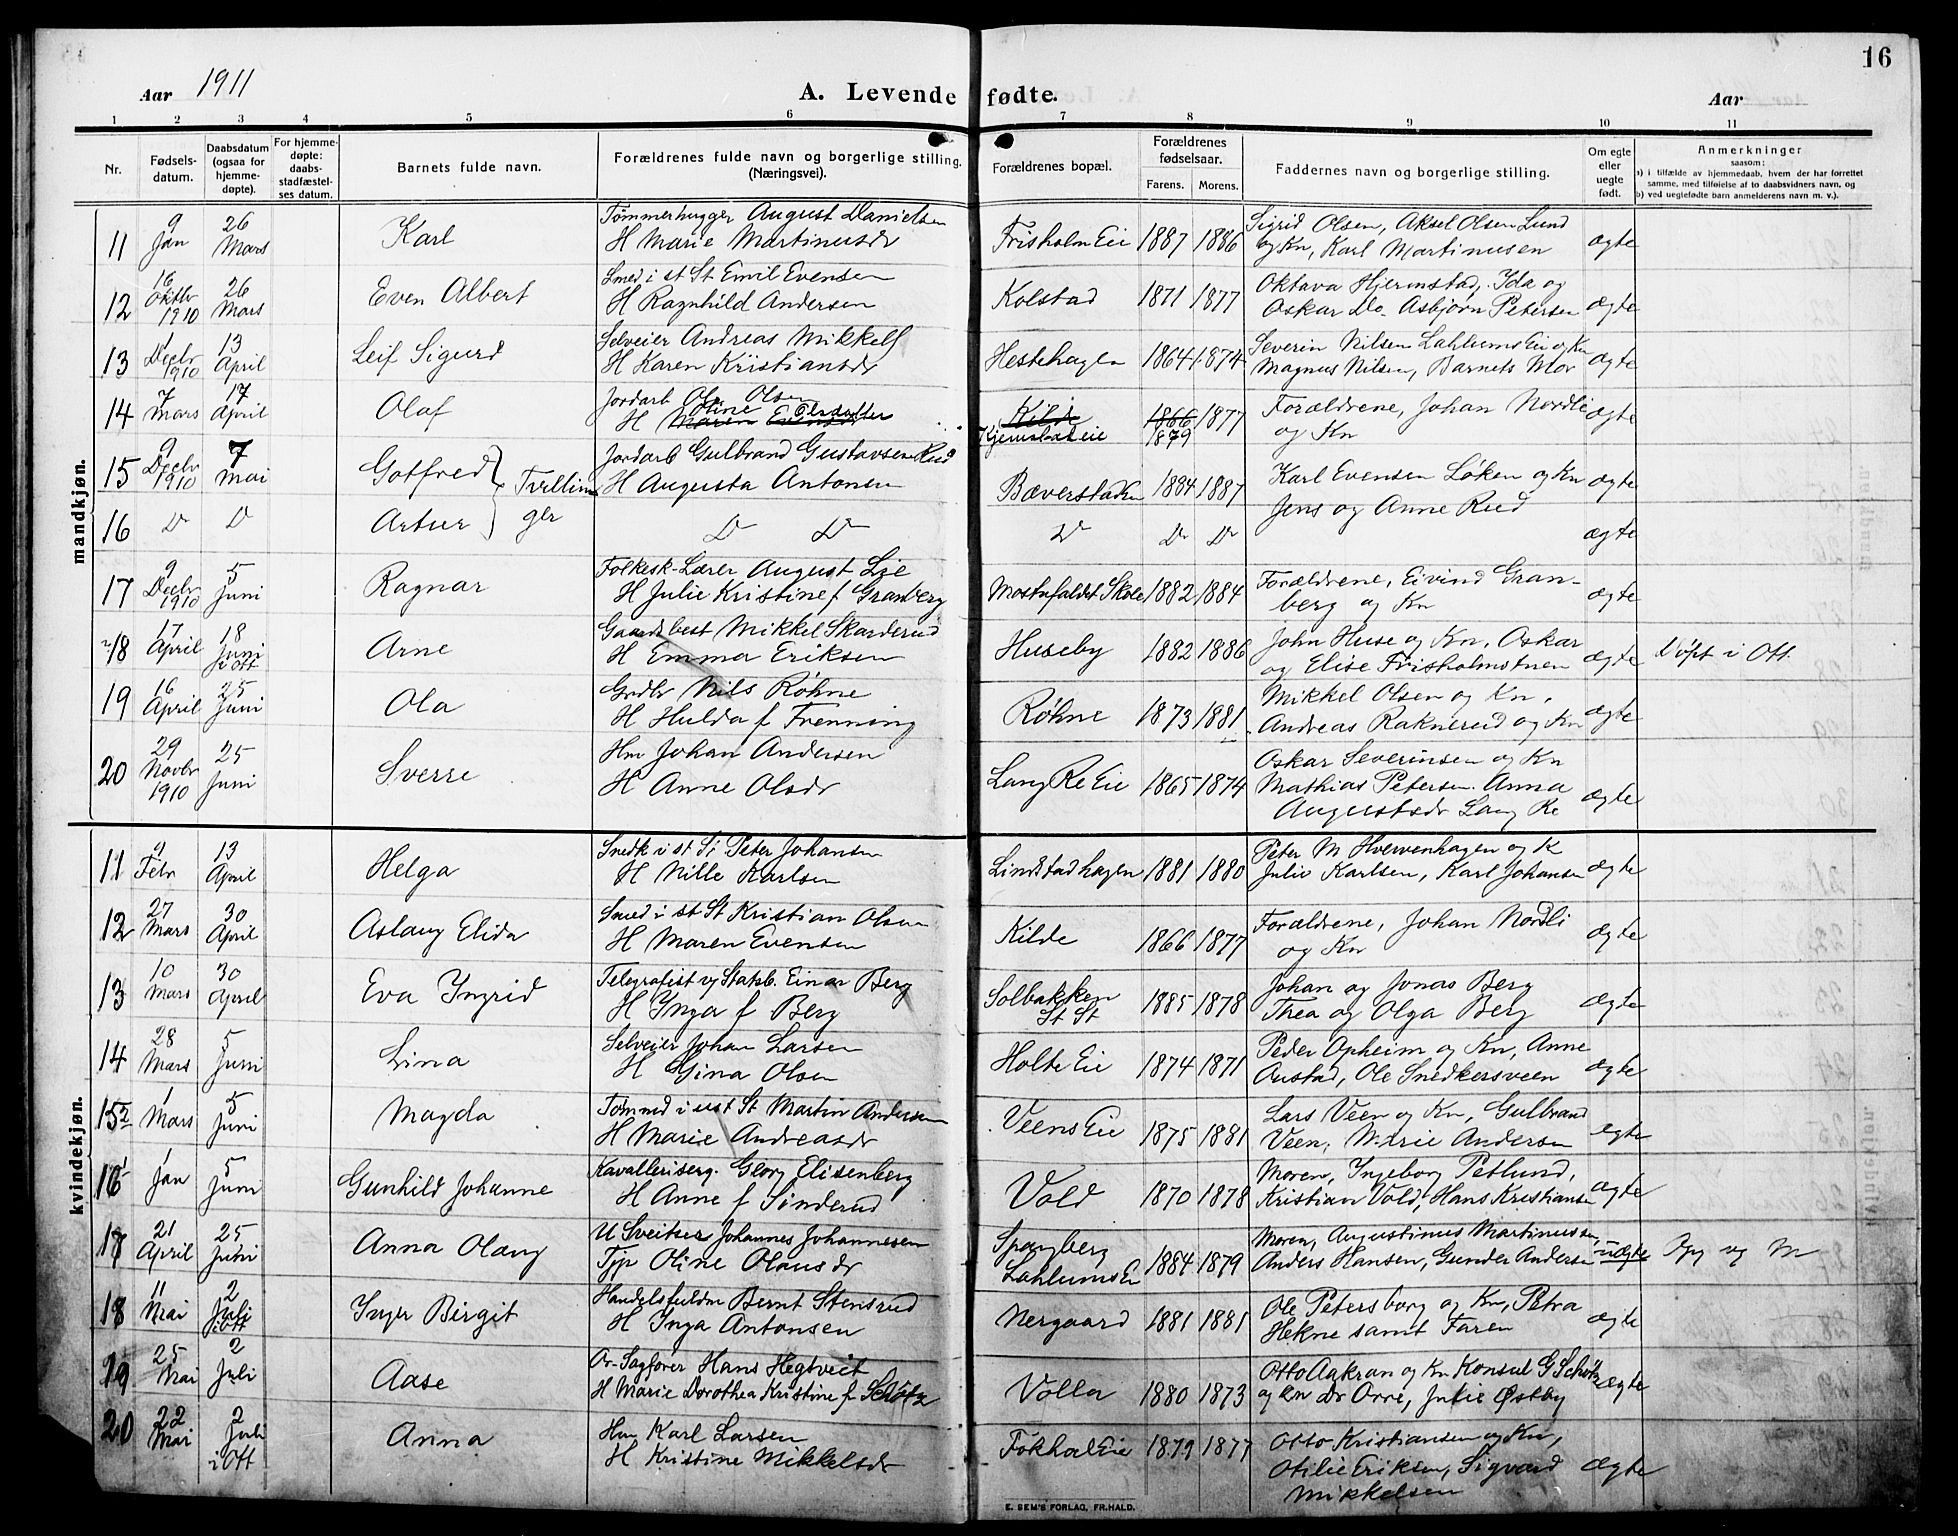 16
Aar 1911
A. Levende fødte.
Aar
1 2 3 4 5 6 7 8 9 10 11
Nr.
Fødsels-
datum.
Daabsdatum
(ogsaa for
hjemme-
døpte).
For hjemme-
døpte:
daabs-
stadfæstel-
ses datum.
Barnets fulde navn.
Forældrenes fulde navn og borgerlige stilling.
(Næringsvei).
Forældrenes bopæl.
Forældrenes
fødselsaar.
Farens. Morens.
Faddernes navn og borgerlige stilling.
Om egte
eller
uegte
født.
Anmerkninger
saasom:
a) i tilfælde av hjemmedaab, hvem der har forrettet
samme, med tilføielse af to daabsvidners navn, og
b) ved uegtefødte barn anmelderens navn m. v.).
mandkjøn.
11
9
Jan
26
Mars
Karl
Tømmerhugger August Danielsen
H Marie Martinusdr
Frisholm Eie
1887 1886
Sigrid Olsen, Aksel Olsen Lund
og Kn, Karl Martinusen
ægte
12
16
Oktbr
1910
26
Mars
Even Albert
Smed i st St Emil Evensen
H Ragnhild Andersen
Kolstad
1871 1877
Oktava Hjermstad, Ida og
Oskar Do. Asbjørn Petersen
ægte
13
1
Decbr
1910
13
April
Leif Sigurd
Selveier Andreas Mikkels
H Karen Kristiansdr
Hestehagen
1864 1874
Severin Nilsen Lahlums Eie og Kn
Magnus Nilsen, Barnets Mor
ægte
14
7
Mars
17
April
Olaf
Jordarb Ole Olsen
Oline Olsdatter
H Maren Evensdr
Kilde
Kjemstadeie
1866
1879
1877
Forældrene, Johan Nordli
og Kn
ægte
15
9
Decbr
1910
7
Mai
Gotfred
Tvillin
Jordarb Gulbrand Gustavsen Rud
H Augusta Antonsen
Bæverstadken
1884 1887
Karl Evensen Løken og Kn
ægte
16
Do
Do
Artur
ger
Do Do
Do
Do Do
Jens og Anne Rud
ægte
17
9
Decbr
1910
5
Juni
Ragnar
Folkesk-Lærer August Lie
H Julie Kristine f Granberg
Mostufaldet Skole
1882 1884
Forældrene, Eivind Gran-
berg og Kn
ægte
18
17
April
18
Juni
i Ott
Arne
Gaardsbest Mikkel Skarderud
H Emma Eriksen
Huseby
1882 1886
John Huse og Kn, Oskar
og Elise Frisholmstuen
ægte
Døpt i Ott.
19
16
April
25
Juni
Ola
Grdbr Nils Røhne
H Hulda f Frenning
Røhne
1873 1881
Mikkel Olsen og Kn,
Andreas Raknerud og Kn
ægte
20
29
Novbr
1910
25
Juni
Sverre
Hm Johan Andersen
H Anne Olsdr
Lang Re Eie
1865 1874
Oskar Severinsen og Kn
Mathias Petersen. Anna
Augustsdr Lang Re
ægte
kvindekjøn.
11
9
Febr
13
April
Helga
Snedk i st St Peter Johansen
H Nille Karlsen
Lindstadhagen
1881 1880
Peter M Hvervenhagen og K
Julie Karlsen, Karl Johansen
ægte
12
27
Mars
30
April
Aslaug Elida
Smed i st St Kristian Olsen
H Maren Evensen
Kilde
1866 1877
Forældrene, Johan Nordli
og Kn
ægte
13
10
Mars
30
April
Eva Ingrid
Telegrafist vg Statsb. Einar Berg
H Inga f Berg
Solbakken
St St
1885 1878
Johan og Jonas Berg
Thea og Olga Berg
ægte
14
28
Mars
5
Juni
Lina
Selveier Johan Larsen
H Gina Olsen
Holte Eie
1874 1871
Peder Opheim og Kn, Anne
Austad, Ole Snedkersveen
ægte
15
1
Mars
5
Juni
Magda
Tømmed i ust St Martin Andersen
H Marie Andreasdr
Veens Eie
1875 1881
Lars Veen og Kn, Gulbrand
Veen, Marie Andersen
egte
16
1
Jan
5
Juni
Gunhild Johanne
Kavalleriserg. Georg Elisenberg
H Anne f Sinderud
Vold
1870 1878
Moren, Ingeborg Petlund,
Kristian Vold, Hans Kristiansen
ægte
17
21
April
25
Juni
Anna Olaug
U Sveitser Johannes Johannesen
Tjp Oline Olausdr
Spangberg
Lahlums Eie
1884 1879
Moren, Augustinus Martinussen,
Anders Hansen, Gunder Andersen
uægte
18
11
Mai
2
Juli
i Ott
Inger Birgit
Handelsfuldm Bernt Stensrud
H Inga Antonsen
Nergaard
1881 1881
Ole Petersborg og Kn, Petra
Hekne samt Faren
ægte
19
25
Mai
2
Juli
Aase
Or-Sagfører Hans Hegtveit
H Marie Dorothea Kristine f Schøtz
Volla
1880 1873
Otto Aakran og Kn Konsul G Schøtz
og Kn Dr Orre, Julie Østby
ægte
20
22
Mai
2
Juli
i Ott
Anna
Hm Karl Larsen
H Kristine Mikkelsdr
Fokhol Eie
1879 1877
Otto Kristiansen og Kn,
Otilie Eriksen, Sigvard
Mikkelsen
ægte
E. SEM'S FORLAG, FR.HALD.